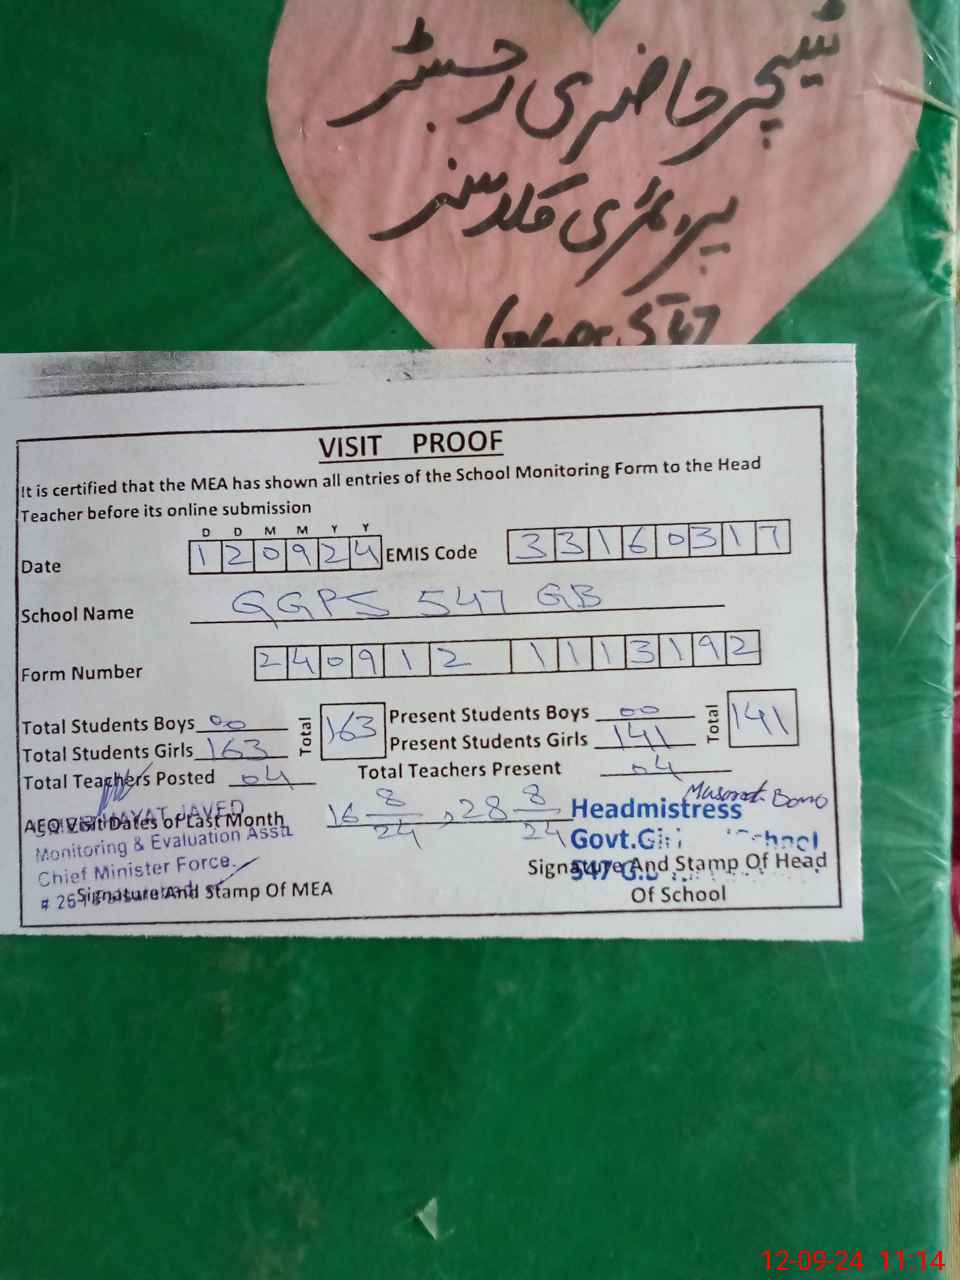 ٹیچر حاضری رجسٹر
پریمئری کلاسز
547
VISIT PROOF
It is certified that the MEA has shown all entries of the School Monitoring Form to the Head
Teacher before its online submission
D D M M Y Y
Date 1 2 0 9 2 4 EMIS Code 3 3 1 6 0 3 1 7
School Name GGPS 547 GB
Form Number 2 4 0 9 1 2 1 1 1 3 1 9 2
Total Students Boys 00 Total 163 Present Students Boys 00 Total 141
Total Students Girls 163 Present Students Girls 141
Total Teachers Posted 04 Total Teachers Present 04
AEO Visit Dates of Last Month 16 8/24, 28 8/24
Musarrat Bano
Headmistress
Govt. School
547
JAVED
Monitoring & Evaluation Asstt
Chief Minister Force.
Signature And Stamp Of MEA
Signature And Stamp Of Head
Of School
12-09-24 11:14